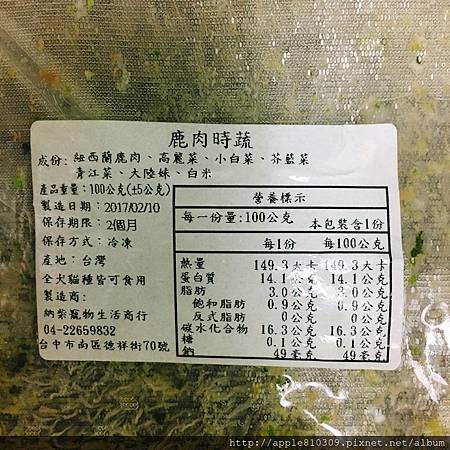 鹿肉時蔬
成份: 紐西蘭鹿肉、高麗菜、小白菜、芥藍菜
青江菜、大陸妹、白米
產品重量：100公克(±5公克)
製造日期：2017/02/10
保存期限：2個月
保存方式：冷凍
產地：台灣
全犬貓種皆可食用
製造商：
納柴寵物生活商行
04-22659832
台中市南區德祥街70號
營養標示
每一份量:100公克
本包裝含1份
每1份 每100公克
熱量 149.3大卡 149.3大卡
蛋白質 14.1公克 14.1公克
脂肪 3.0公克 3.0公克
飽和脂肪 0.9公克 0.9公克
反式脂肪 0公克 0公克
碳水化合物 16.3公克 16.3公克
糖 0.1公克 0.1公克
鈉 49毫克 49毫克
http://apple810309.pixnet.net/album